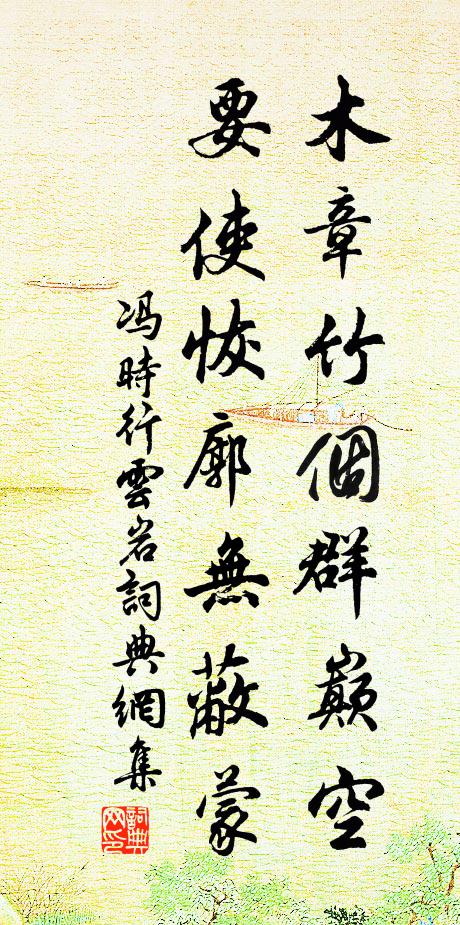 木章竹個群巔空
要使恢廓無蔽蒙
冯時行雲岩詞典網集
詞典網印